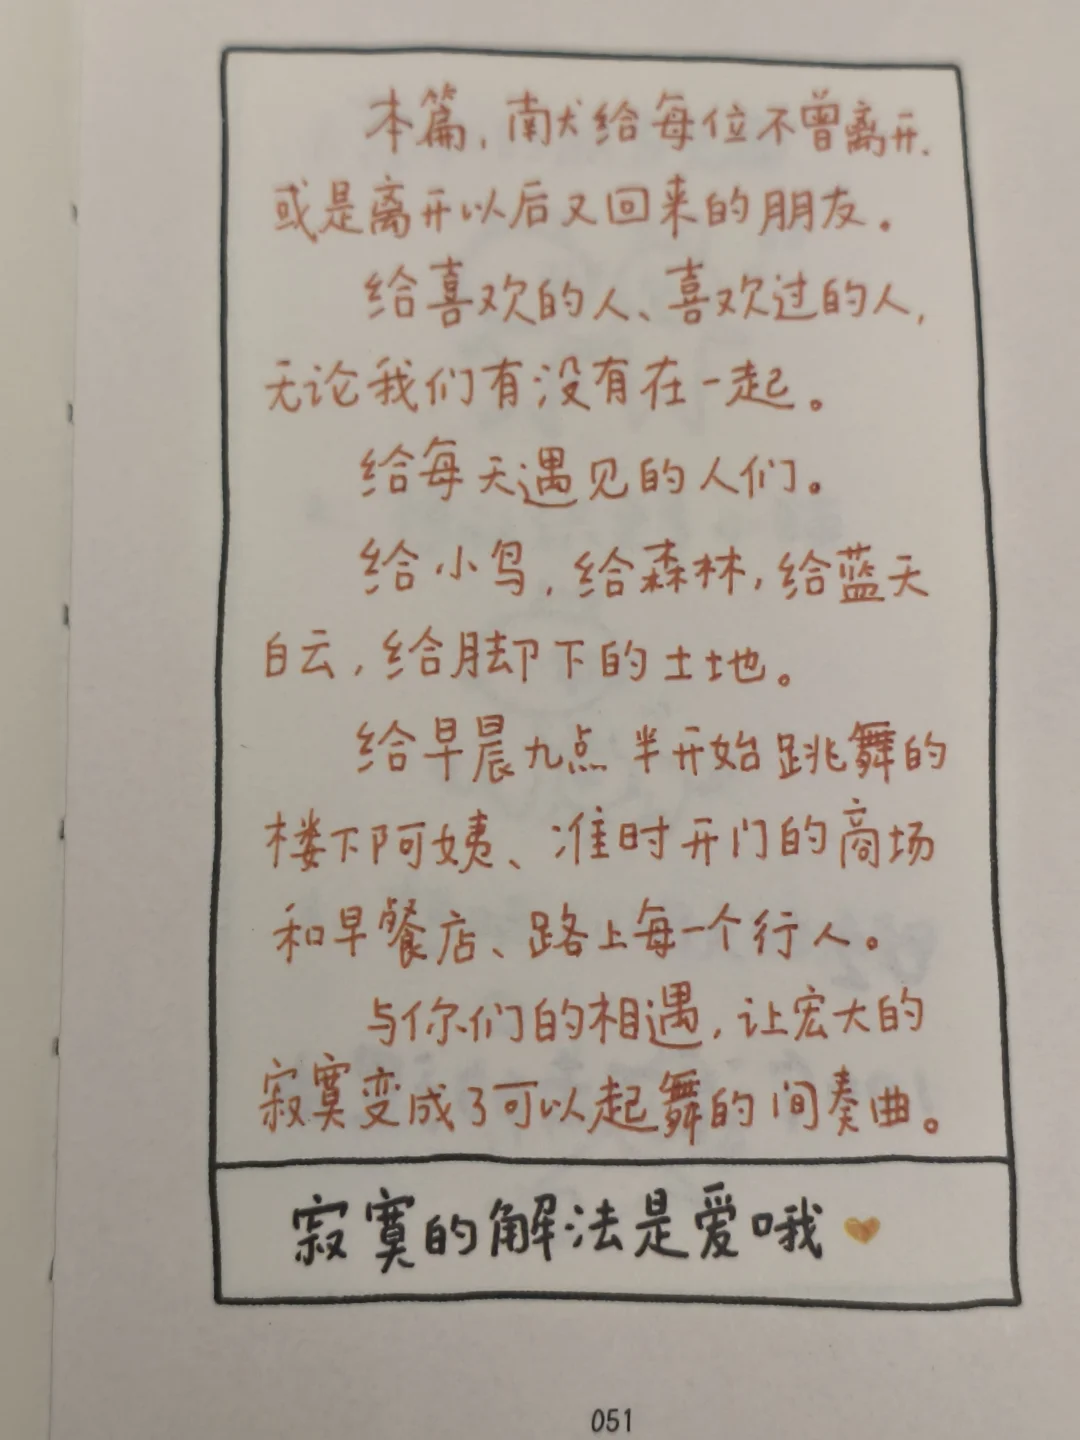 本篇，献给每位不曾离开，
或是离开以后又回来的朋友。
给喜欢的人、喜欢过的人，
无论我们有没有在一起。
给每天遇见的人们。
给小鸟，给森林，给蓝天
白云，给脚下的土地。
给早晨九点半开始跳舞的
楼下阿姨、准时开门的商场
和早餐店、路上每一个行人。
与你们的相遇，让宏大的
寂寞变成了可以起舞的间奏曲。
寂寞的解法是爱哦
051